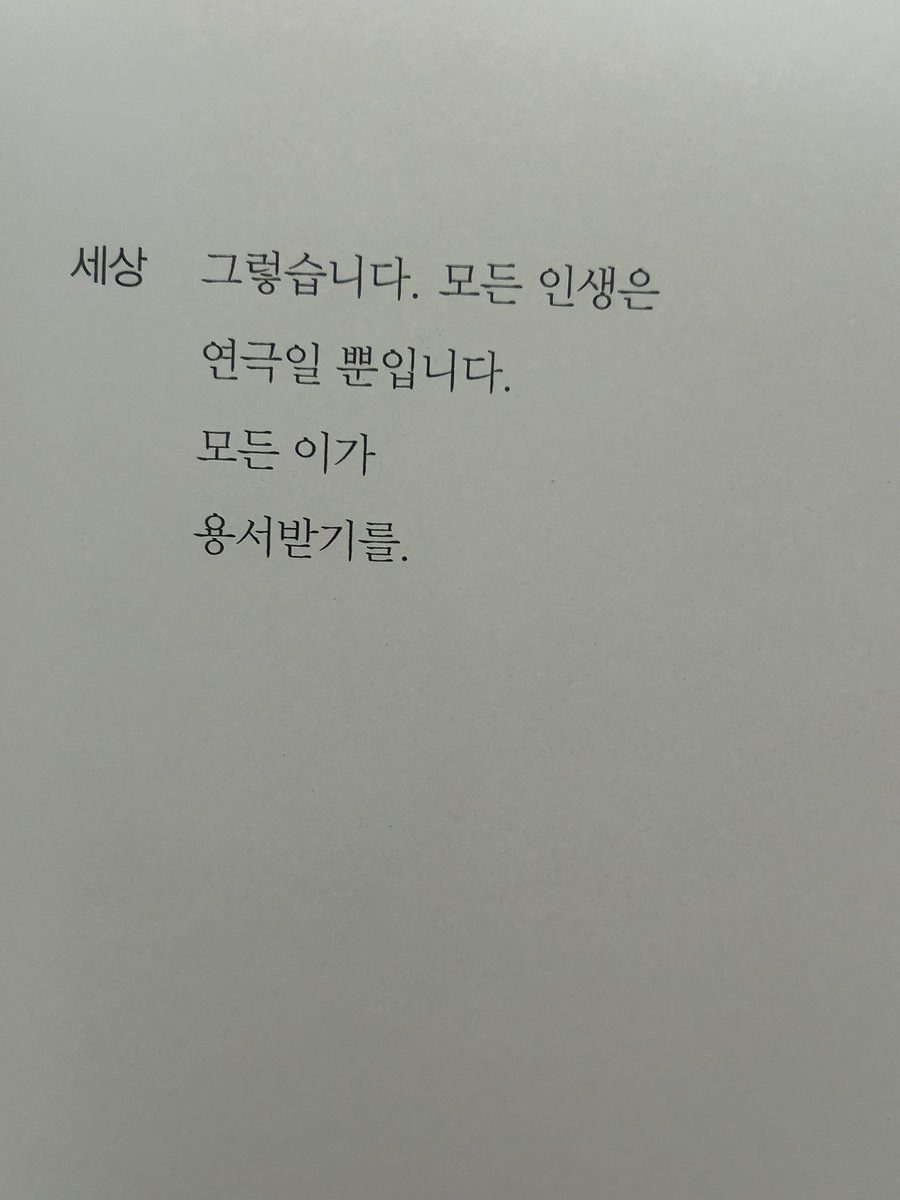 세상 그렇습니다. 모든 인생은
연극일 뿐입니다.
모든 이가
용서받기를.